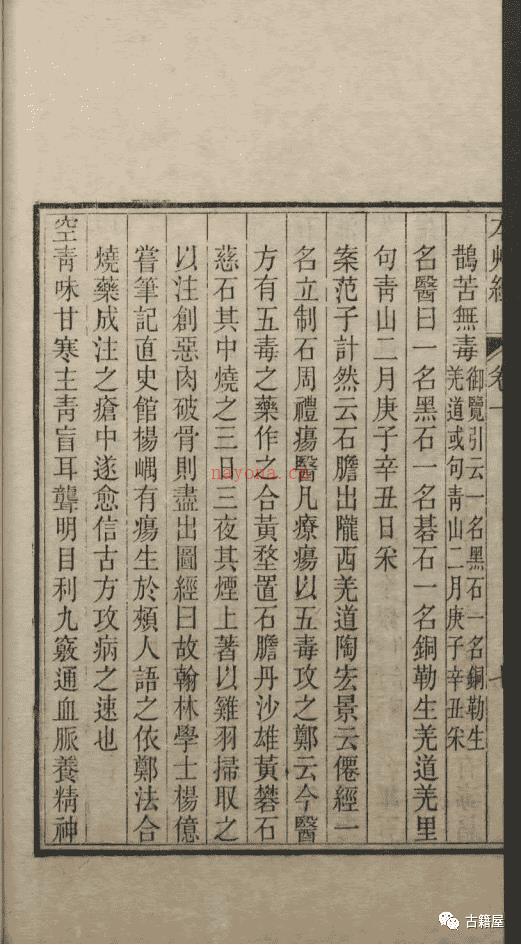 本艸經 卷一 七
鵲苦無毒御覽引云一名黑石一名銅勒生
羌道或句青山二月庚子辛丑采
名醫曰一名黑石一名碁石一名銅勒生羌道羌里
句青山二月庚子辛丑日采
案范子計然云石膽出隴西羌道陶宏景云僊經一
名立制石周禮瘍醫凡療瘍以五毒攻之鄭云今醫
方有五毒之藥作之合黃堥置石膽丹沙雄黃礬石
慈石其中燒之三日三夜其煙上著以雞羽掃取之
以注創惡肉破骨則盡出圖經曰故翰林學士楊億
嘗筆記直史館楊嵎有瘍生於頰人語之依鄭法合
燒藥成注之瘡中遂愈信古方攻病之速也
空青味甘寒主青盲耳聾明目利九竅通血脈養精神
nayona.cn
古籍屋